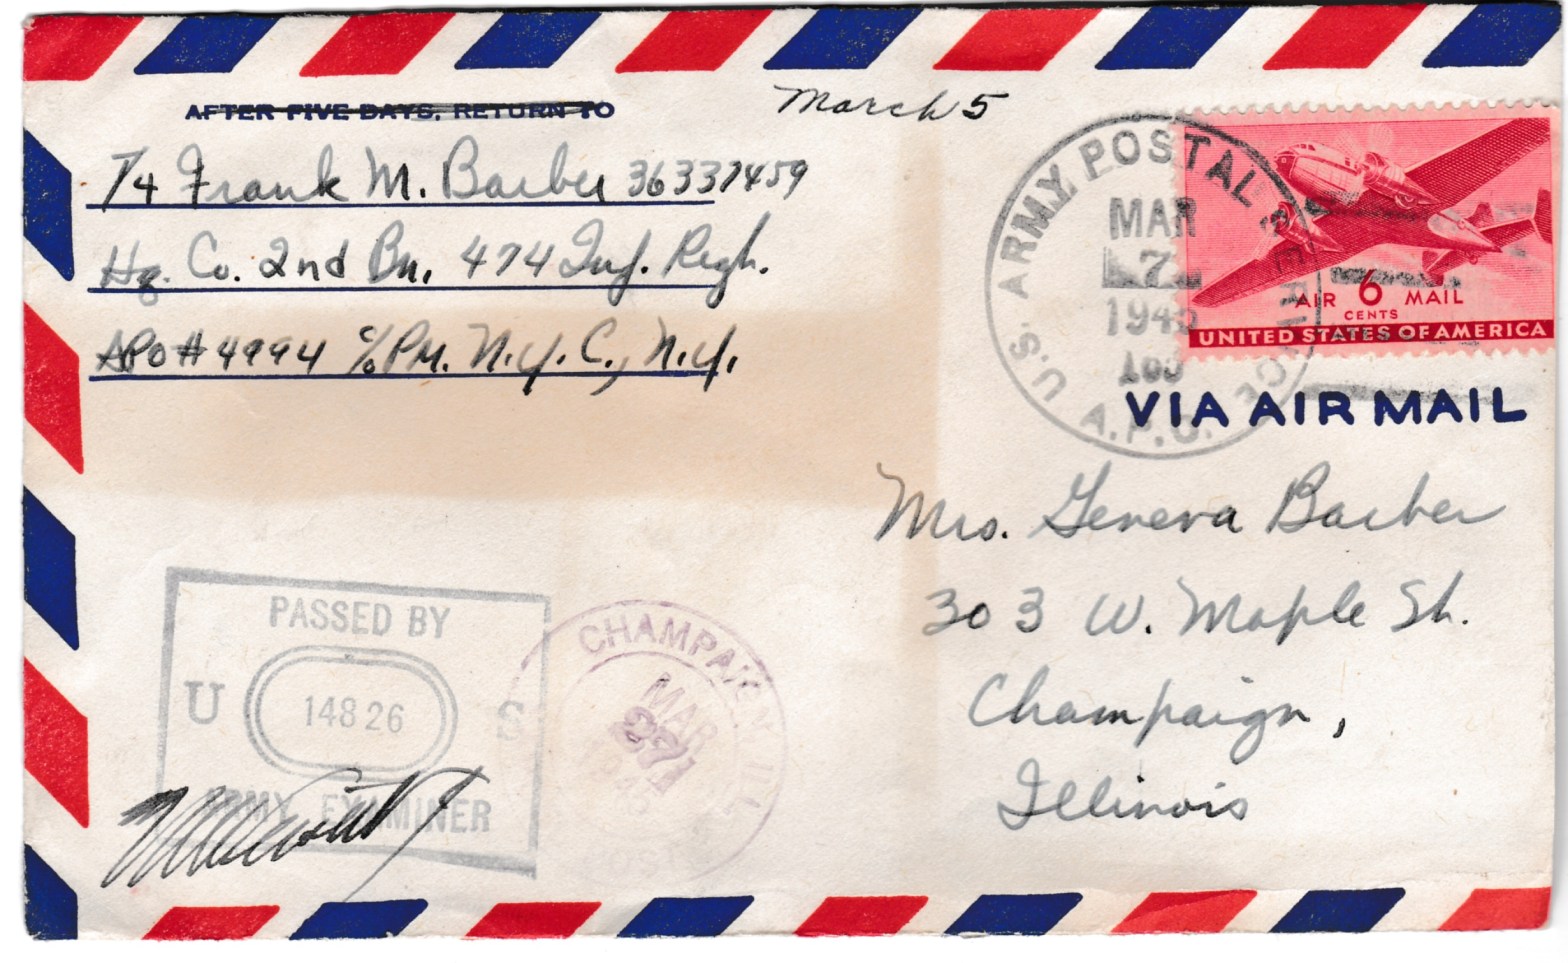 AFTER FIVE DAYS, RETURN TO
March 5
T/4 Frank M. Barber 36337459
Hq. Co. 2nd Bn. 474 Inf. Regt.
APO # 4994 c/o PM. N.Y.C., N.Y.
U.S. ARMY POSTAL SERVICE
MAR
7
1945
A.P.O.
AIR 6 MAIL
CENTS
UNITED STATES OF AMERICA
VIA AIR MAIL
Mrs. Geneva Barber
303 W. Maple St.
Champaign,
Illinois
PASSED BY
U 14826 S
ARMY EXAMINER
CHAMPAIGN
MAR